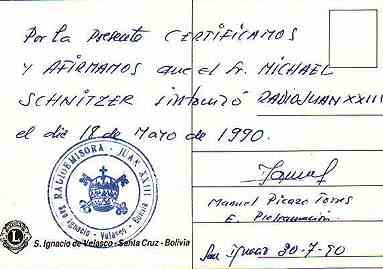 Por la presente CERTIFICAMOS
Y AFIRMAMOS que el Sr. MICHAEL
SCHNITZER sintonizó RADIO JUAN XXIII
el día 18 de Mayo de 1990.
RADIOEMISORA · JUAN XXIII
San Ignacio · Velasco · Bolivia
Manuel Picazo Torres
E. Programación
L
S. Ignacio de Velasco - Santa Cruz - Bolivia
San Ignacio 20-7-90